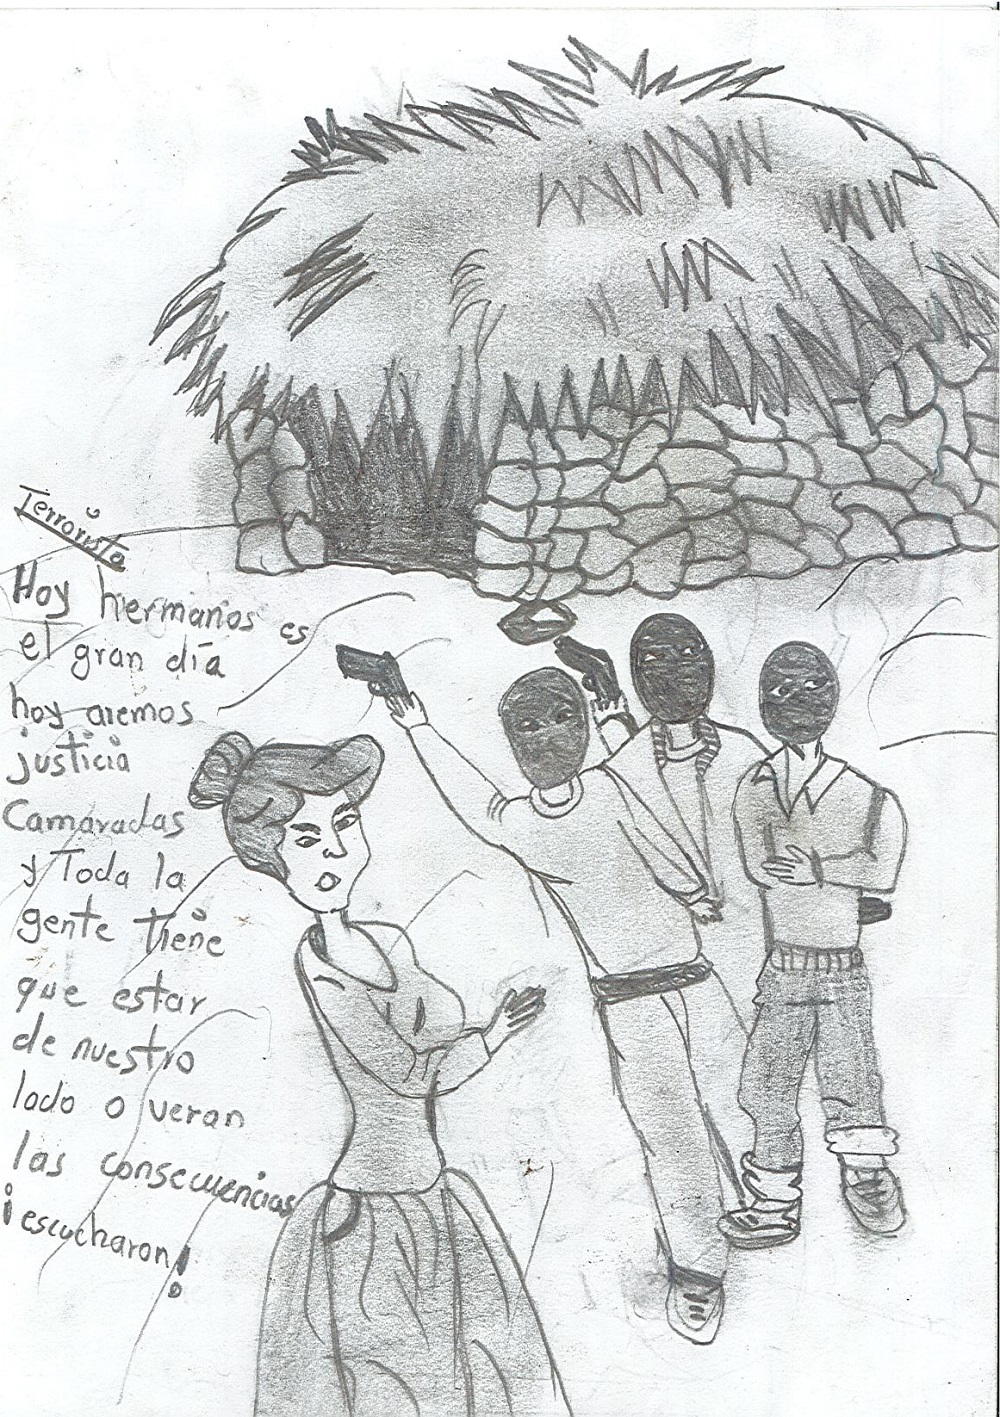 Terrorista
Hoy hermanos es
el gran día
hoy aremos
justicia
Camaradas
y Toda la
gente tiene
que estar
de nuestro
lado o veran
las consecuencias
¡escucharon!